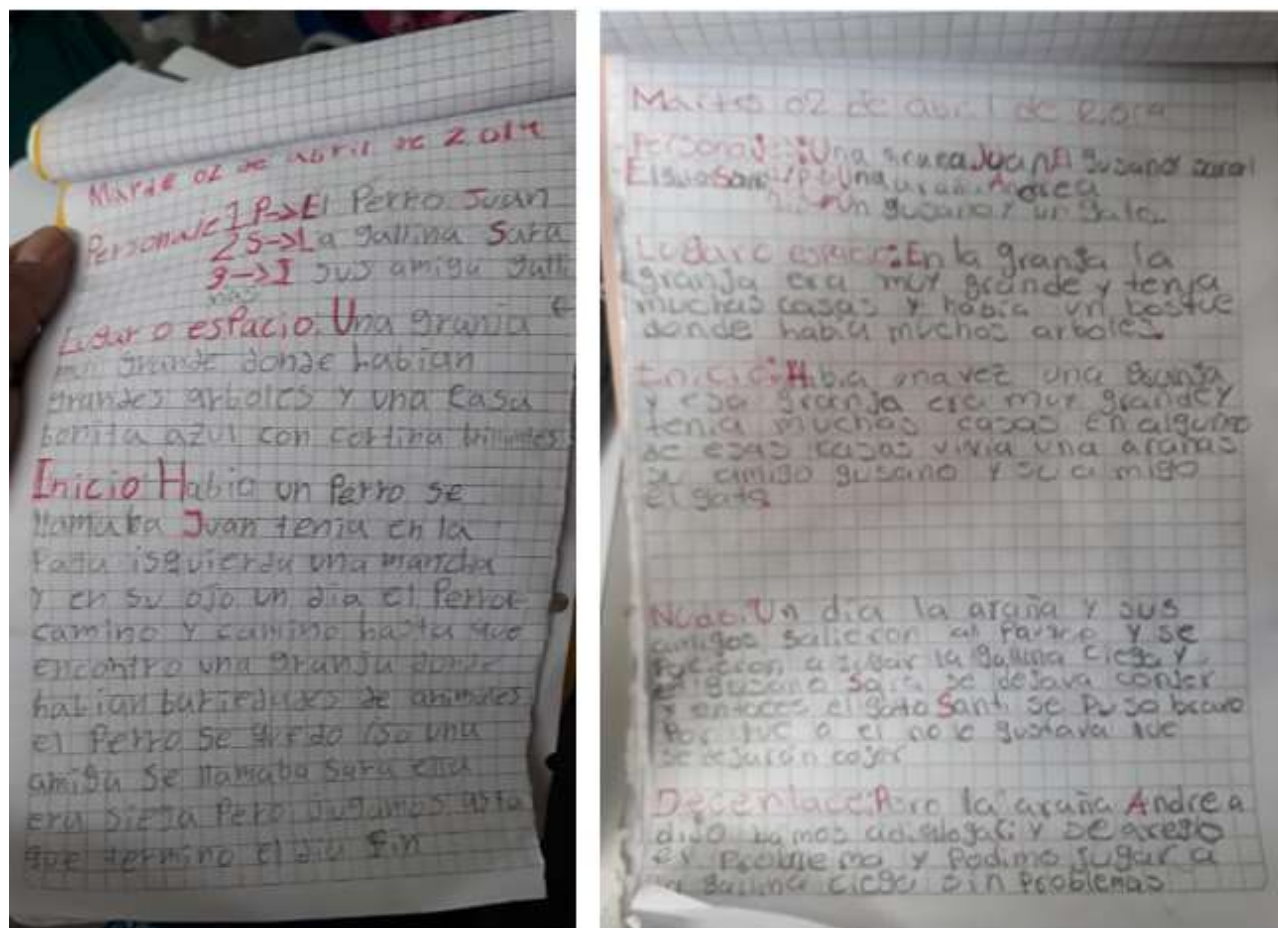 Martes 02 de abril de 2.019
Personaje 1 P->El Perro Juan
2 S->La gallina Sara
3->I sus amiga galli
nas
Lugar o espacio. Una granja
muy grande donde habian
grandes arboles y una casa
bonita azul con cortina brillantes
Inicio Habia un Perro se
llamaba Juan tenia en la
Pata isquierda una mancha
y en su ojo un dia el Perro
camino y camino hasta que
encontro una granja donde
habian bariedades de animales
el Perro se quedo iso una
amiga se llamaba Sara ella
era siega Pero jugamos asta
que termino el dia Fin
Martes 02 de abril de 2.019
Personaje: Una Juan El gusano
Una Andrea
un gusano y un gato
Lugar o espacio: En la granja la
granja era muy grande y tenia
muchas casas y habia un bosque
donde habia muchos arboles.
Inicio: Habia una vez una granja
y esa granja era muy grande y
tenia muchas casas en alguno
de esas casas vivia una arañas
su amigo gusano y su a migo
el gato
Nudo: Un dia la araña y sus
amigos salieron al Parque y se
a jugar la gallina ciega y
el gusano Sara se dejava conjer
y entoces el gato Santi se Puso bravo
Por que a el no le gustava que
se dejaran cojer
Decenlace: Pero la araña Andrea
dijo bamos a dialogar y se areglo
el Problema y Podimo jugar a
la gallina ciega sin Problemas